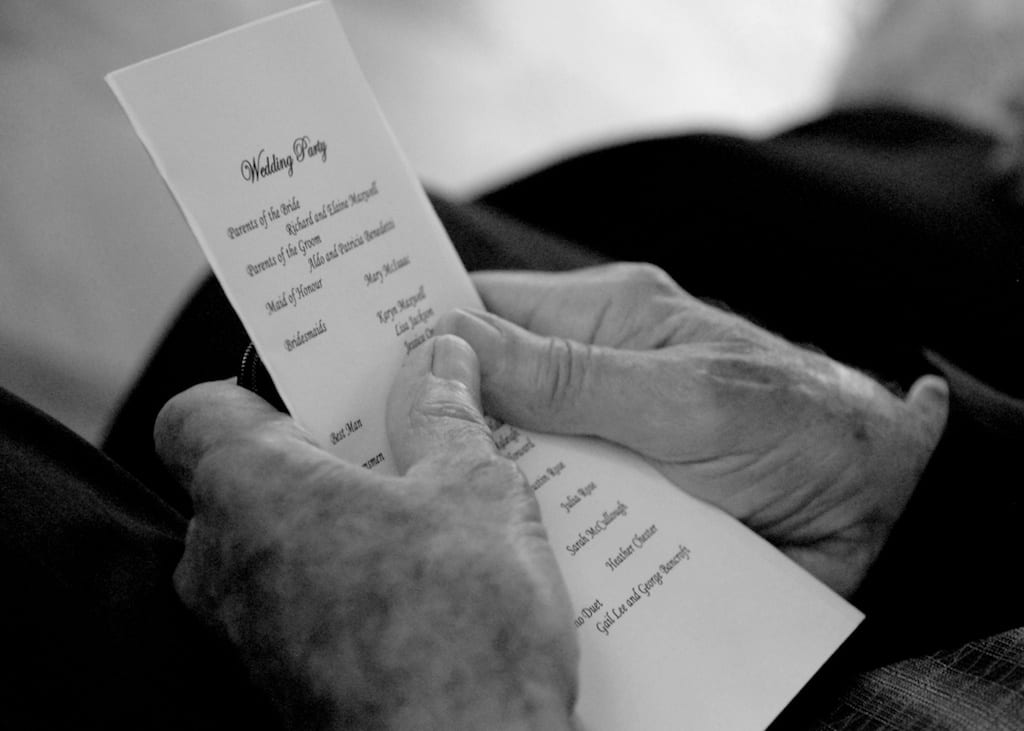 Wedding Party
Parents of the Bride
Richard and Elaine Maxwell
Parents of the Groom
Aldo and Patricia Benedetti
Maid of Honour Mary McIsaac
Bridesmaids Karyn Maxwell
Lisa Jackson
Jessica
Best Man
Julia Rose
Sarah McCullough
Heather Chester
Duet
Gail Lee and George Bancroft